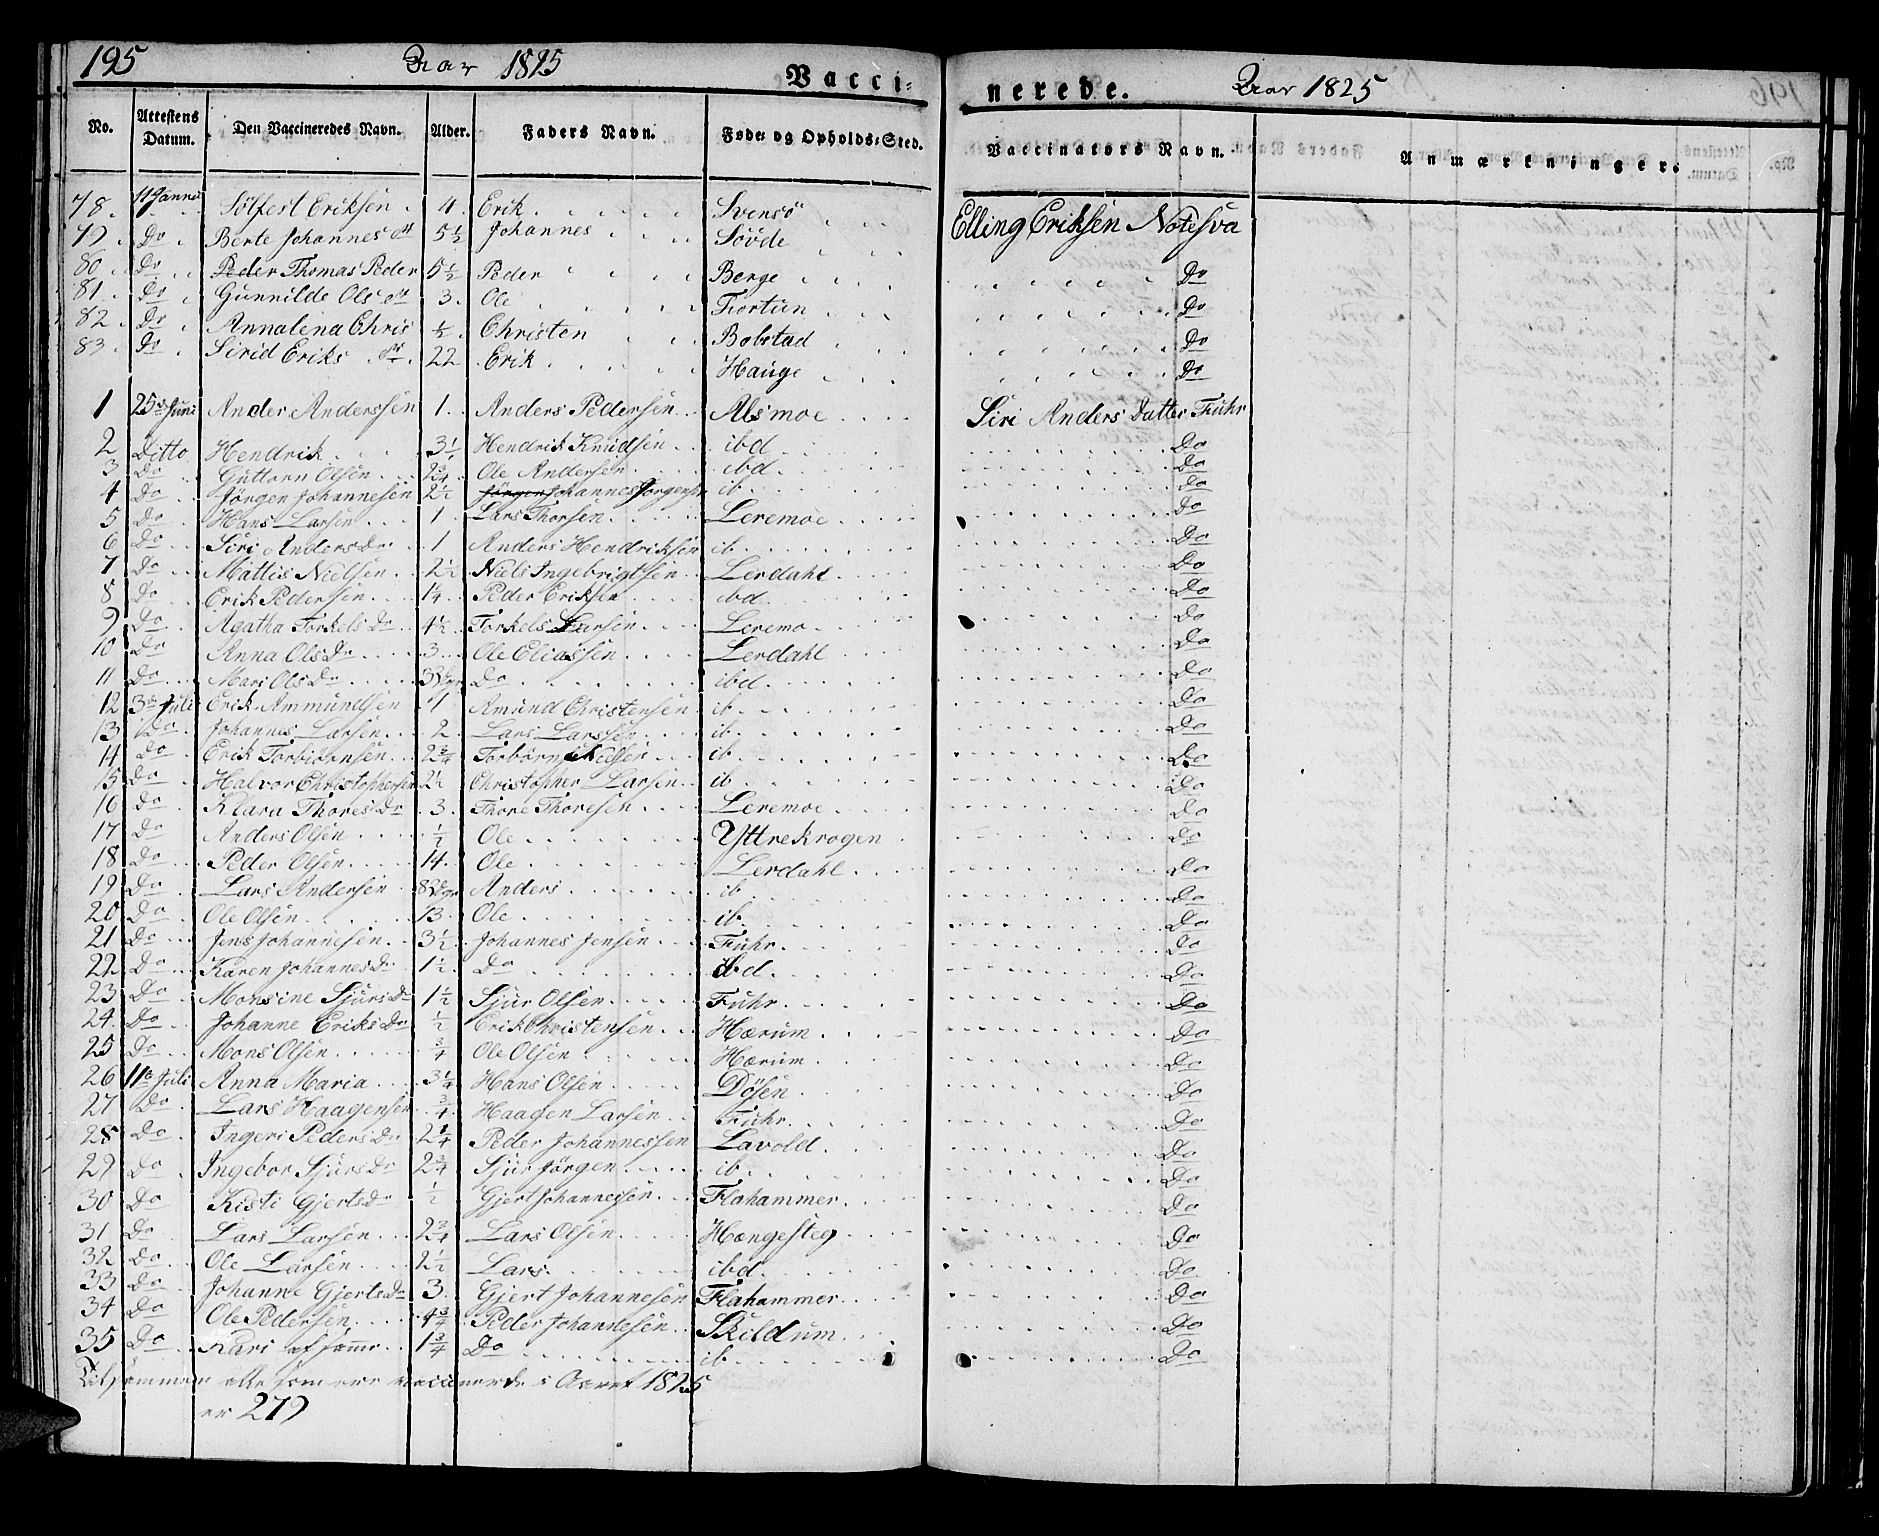 195 Aar 1825 Vacci= nerede. Aar 1825
No. Attestens Datum. Den Vaccineredes Navn. Alder. Faders Navn. Føde- og Opholds-Sted. Vaccinators Navn. Anmærkninger.
78. Sølfest Eriksen 4. Erik Svensö Elling Eriksen Notesva
79. Do Berte Johannes dtr 5 1/2 Johannes Søvde
80. Do Peder Thomas Peder 5 1/2 Peder Berge Do
81. Do Gunnilde Ols dtr 3. Ole Fiortun Do
82. Do Annalena Chris 1/2 Christen Bobstad Do
83. Do Sirid Eriks dtr 22 Erik Hauge Do
1 25de Juni Ander Anderssen 1. Anders Pedersen Alsmoe Siri Anders Datter Fuhr
2 Ditto Hendrik Hendrik Knudsen ibd Do
3 Do Guttorn Olsen 2 3/4 Ole Andersen ibd Do
4 Do Jörgen Johannesen 2 1/2 Johannes Jörgensen ib Do
5 Do Hans Larsen 1 Lars Thorsen Leremoe Do
6 Do Siri Anders Dr 1 Anders Hendriksen ib Do
7 Do Mattis Nielsen 2 1/2 Niels Ingebrigtsen Lerdahl Do
8 Do Erik Pedersen 1/4 Peder Eriksen ibd Do
9 Do Agatha Torkels Dr 4 1/2 Torkels Larsen Leremo Do
10 Do Anna Ols Dr 3 Ole Eliassen Lerdahl Do
11 Do Mari Ols Dr Do ibd Do
12 3de Juli Erik Ammundsen 1 Amund Christensen ib Do
13 Do Johannes Larsen 2 Lars Larssen ib Do
14 Do Erik Torbiörnsen 2 3/4 Torbörn ib Do
15 Do Halvor Christophersen 2 1/2 Christopher Larsen ib Do
16 Do Klara Thores Dr 3. Thore Thoresen Leremoe Do
17 Do Anders Olsen 1/2 Ole Yttrekrogen Do
18 Do Peder Olsen 14. Ole Lerdahl Do
19 Do Lars Andersen Anders ib Do
20 Do Ole Olsen 13. Ole ib Do
21 Do Jens Johannesen 3 1/2 Johannes Jensen Fuhr Do
22 Do Karen Johannes Dr 1 1/2 Do ibd Do
23 Do Monsine Sjurs Dr 1 1/2 Sjur Olsen Fuhr Do
24. Do Johanne Eriks Dr 1/2 Erik Christensen Hærum Do
25 Do Mons Olsen 3/4 Ole Olsen Hærum Do
26 11te Juli Anna Maria 3 1/4 Hans Olsen Dösen Do
27 Do Lars Haagensen 3/4 Haagen Larsen Fuhr Do
28 Do Ingeri Peders Dr Peder Johannessen Lavold Do
29 Do Ingebor Sjurs Dr 2 3/4 Sjur Jörgen ib Do
30 Do Kisti Gjerts Dr 1/2 Gjert Johannessen Flahammer Do
31 Do Lars Larsen 2 3/4 Lars Olsen Hængesteg Do
32 Do Ole Larsen 2 1/2 Lars ibd Do
33 Do Johanne Gjerts Dr 3. Gjert Johannesen Flahammer Do
34 Do Ole Pedersen 4 3/4 Peder Johannesen Skildum Do
35 Do Kari af samme 1 3/4 Do ib Do
Tilsammen alle som ere vaccinerede i Aaret 1825
er 279